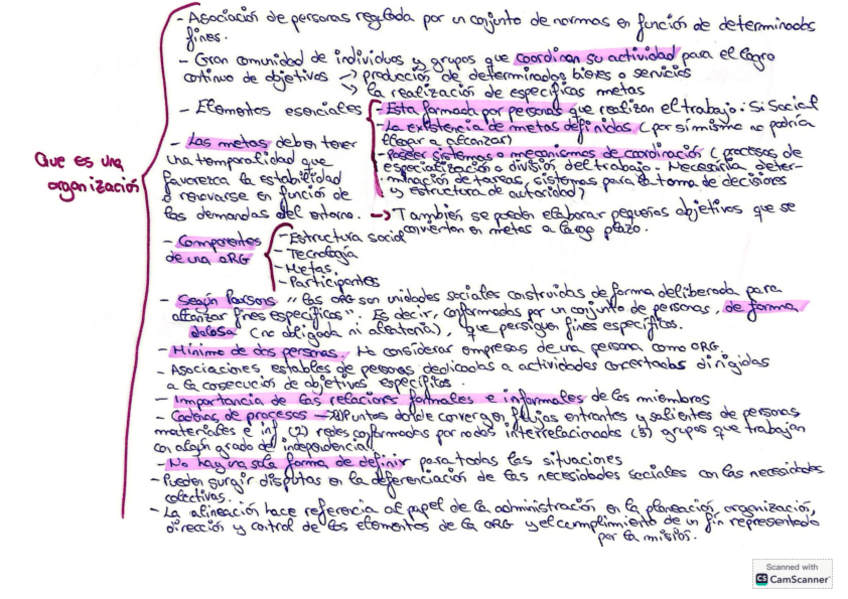 - Asociación de personas regulada por un conjunto de normas en función de determinados
fines.
- Gran comunidad de individuos y grupos que coordinan su actividad para el logro
continuo de objetivos → producción de determinados bienes o servicios
↳ la realización de específicas metas
- Elementos esenciales
- Esta formada por personas que realizan el trabajo: Si Social
- La existencia de metas definidas (por si mismo no podría
llegar a alcanzar)
- Poseer sistemas o mecanismos de coordinación (procesos de
especialización o división del trabajo. Necesitia deter-
minación de tareas, sistemas para la toma de decisiones
y estructura de autoridad)
- Las metas deben tener
una temporalidad que
favorezca la estabilidad
o renovarse en función de
las demandas del entorno. → También se pueden elaborar pequeños objetivos que se
convierten en metas a largo plazo.
Que es una
organización
- Componentes
de una ORG
- Estructura social
- Tecnología
- Metas
- Participantes
- Según Parsons "las ORG son unidades sociales construidas de forma deliberada para
alcanzar fines específicos". Es decir, conformadas por un conjunto de personas, de forma
dolosa (no obligada ni aleatoria), que persiguen fines específicos.
- Mínimo de dos personas. No considerar empresas de una persona como ORG.
- Asociaciones estables de personas dedicadas a actividades concertadas dirigidas
a la consecución de objetivos específicos.
- Importancia de las relaciones formales e informales de los miembros
- Cadenas de procesos → Puntos donde convergen flujos entrantes y salientes de personas
materiales e inf (2) redes conformadas por nodos interrelacionados (3) grupos que trabajan
con algún grado de independencia
- No hay una sola forma de definir para todas las situaciones
- Pueden surgir disputas en la deferenciación de las necesidades sociales con las necesidades
colectivas.
- La alineación hace referencia al papel de la administración en la planeación, organización,
dirección y control de los elementos de la ORG y el cumplimiento de un fin representado
por la misión.
Scanned with
CS CamScanner